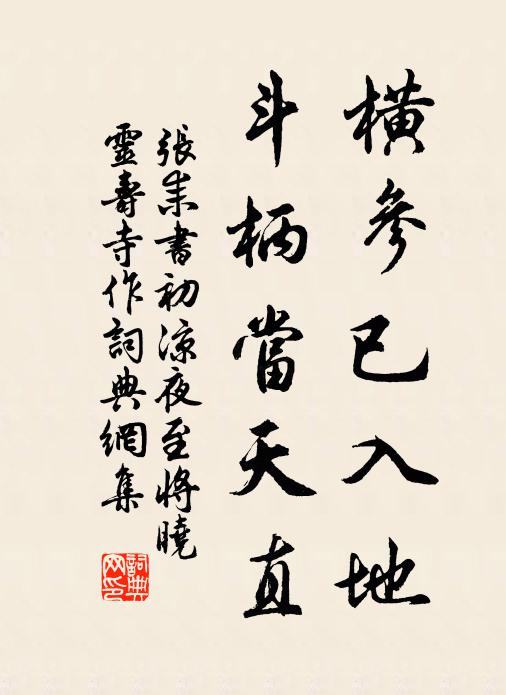 橫參已入地
斗柄當天直
張耒書初涼夜至將曉
靈壽寺作詞典網集
詞典網印